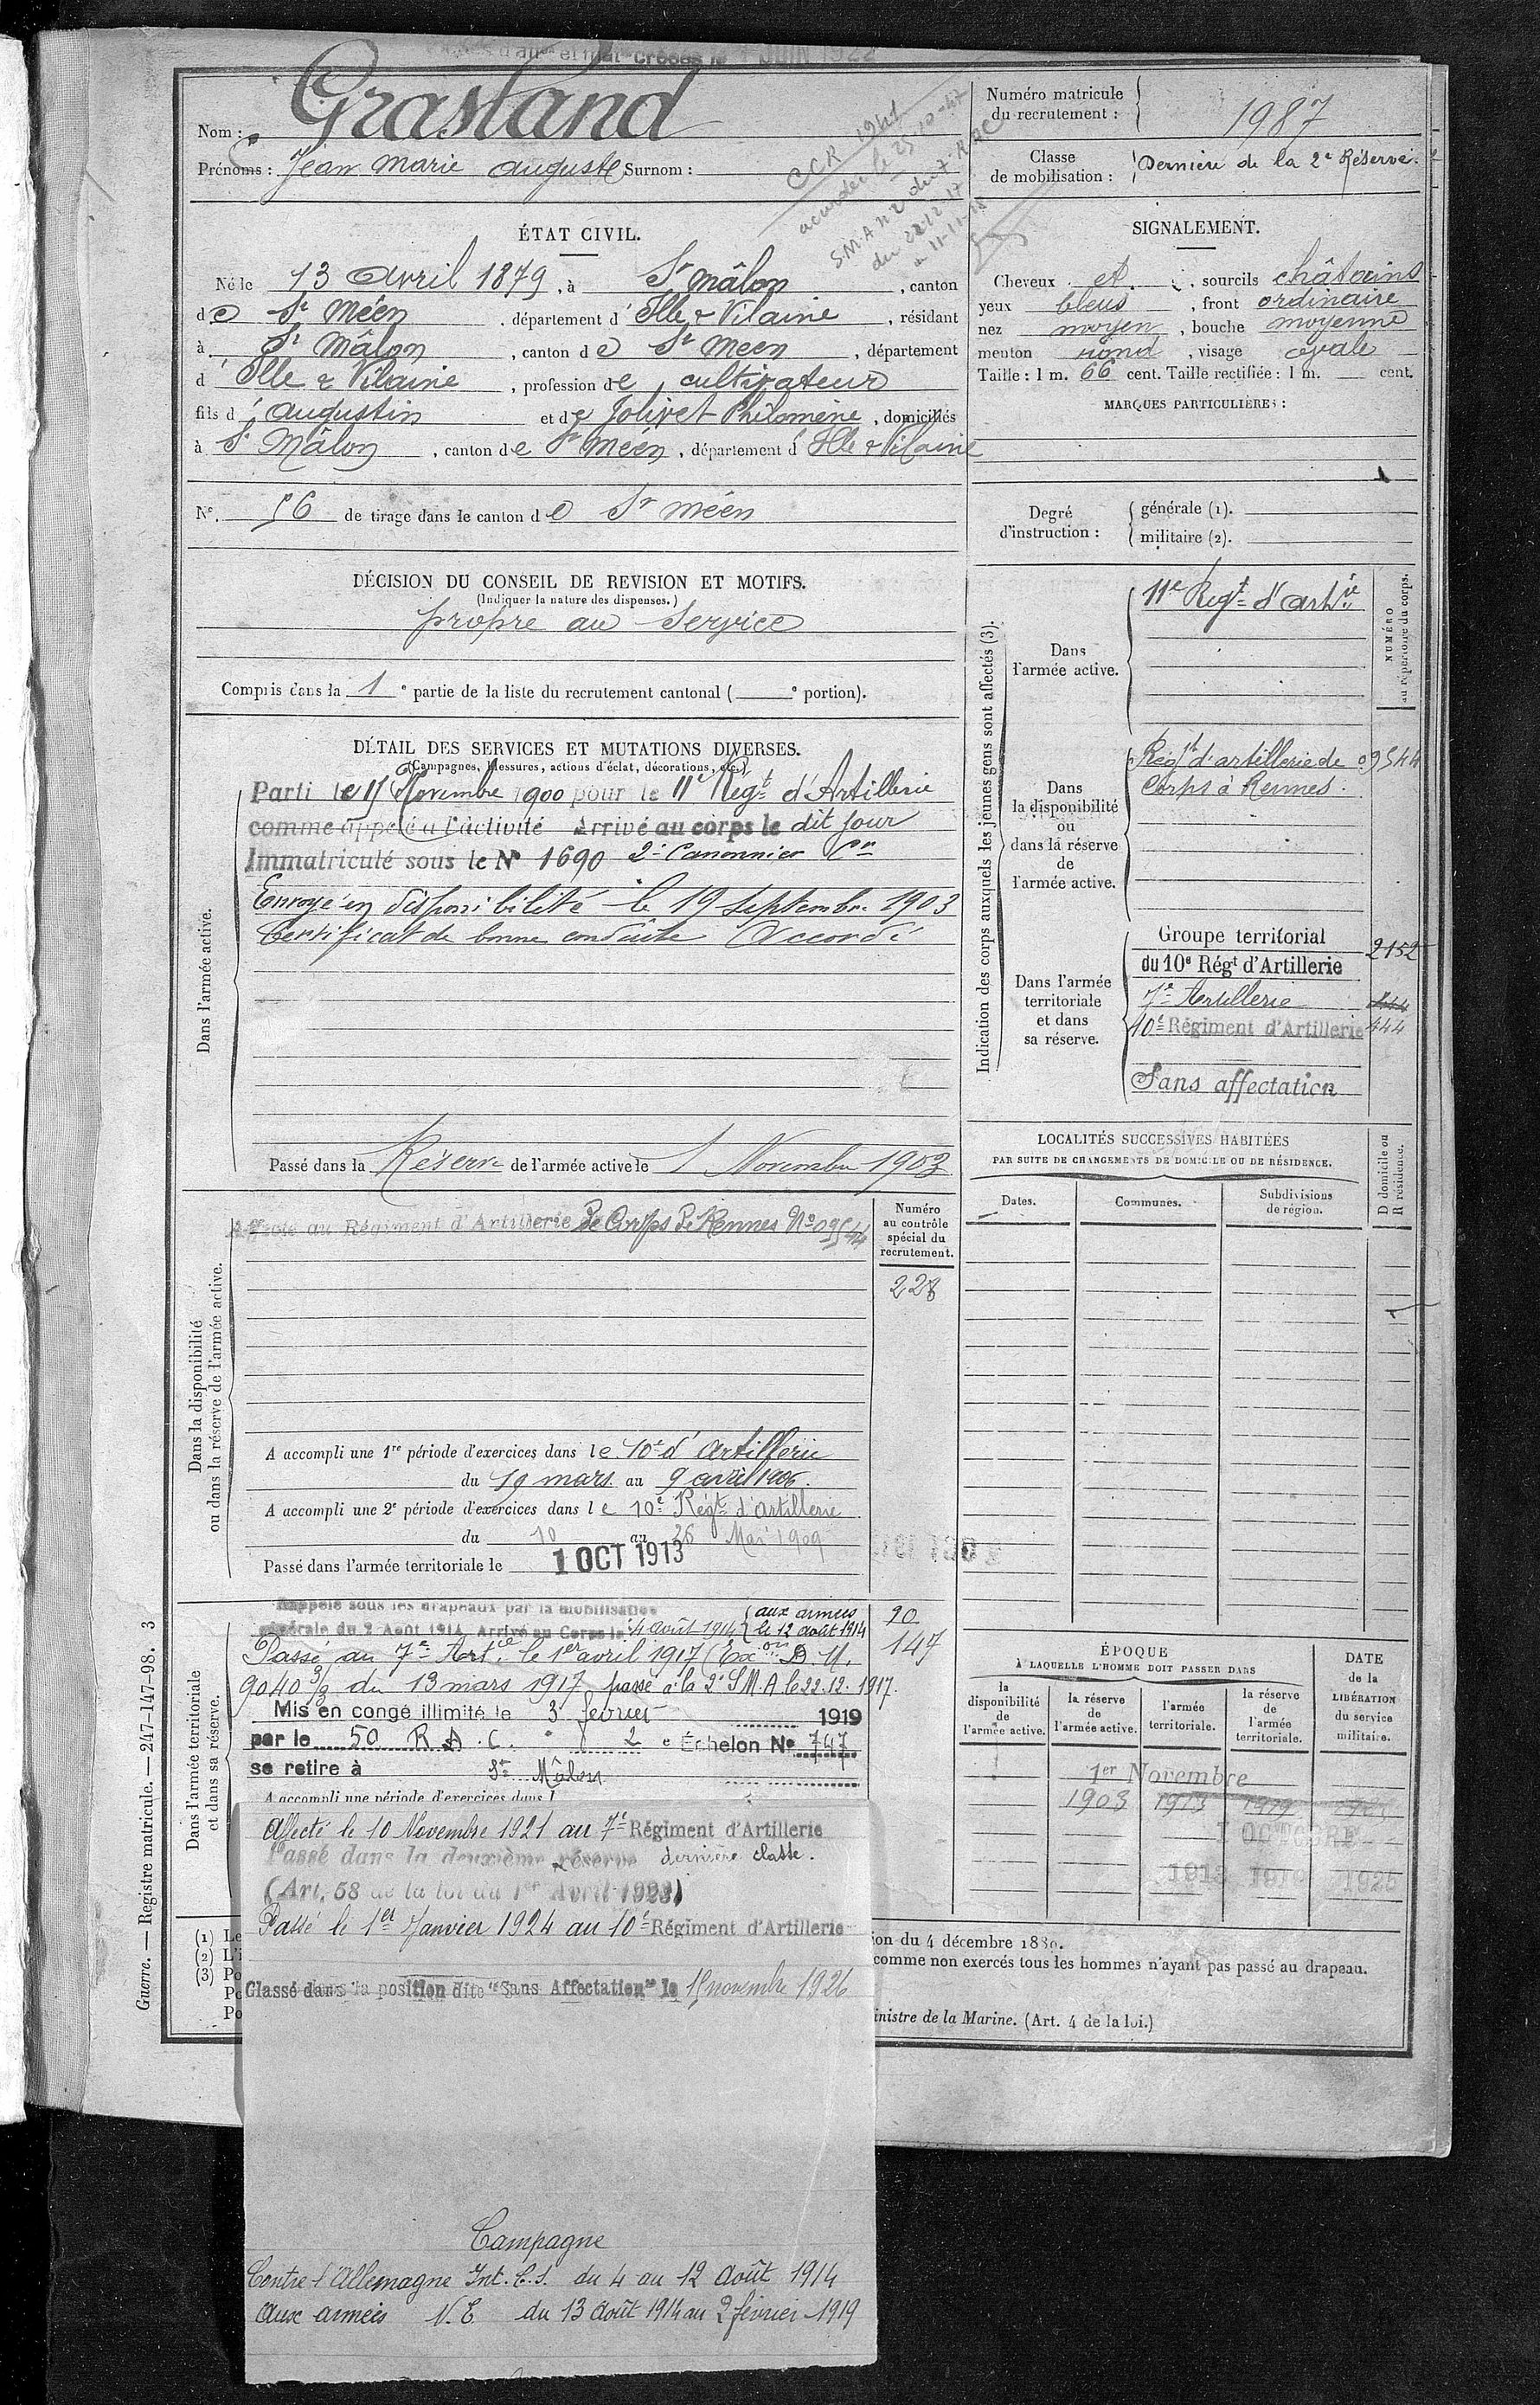 1 JUIN 1922
Nom : Grasland
Prénoms : Jean Marie Auguste Surnom :
CCR 1941
accordée le 25-10-47
S.M.A. N° 2 du 7e RAC
du 22-12-17
a 11-11-18
Numéro matricule
du recrutement : 1987
Classe
de mobilisation : Dernière de la 2e Réserve.
ÉTAT CIVIL.
Né le 13 Avril 1879, à St Mâlon, canton
de St Méen, département d'Ille & Vilaine, résidant
à St Mâlon, canton de St Meen, département
d'Ille & Vilaine, profession de cultivateur
fils d'Augustin et de Jolivet Philomène, domiciliés
à St Mâlon, canton de St Méen, département d'Ille & Vilaine
N°. 56 de tirage dans le canton de St méen
SIGNALEMENT.
Cheveux et , sourcils châtains
yeux bleus, front ordinaire
nez moyen, bouche moyenne
menton rond, visage ovale
Taille : 1 m. 66 cent. Taille rectifiée : 1 m. cent.
MARQUES PARTICULIÈRES :
Degré
d'instruction :
générale (1).
militaire (2).
DÉCISION DU CONSEIL DE REVISION ET MOTIFS.
(Indiquer la nature des dispenses.)
propre au service
Compris dans la 1e partie de la liste du recrutement cantonal ( e portion).
DÉTAIL DES SERVICES ET MUTATIONS DIVERSES.
(Campagnes, blessures, actions d'éclat, décorations, etc.)
Dans l'armée active.
Parti le 15 Novembre 1900 pour le 11e Régt d'Artillerie
comme appelé à l'activité Arrivé au corps le dit jour
Immatriculé sous le N° 1690 2e Canonnier Cr
Envoyé en disponibilité le 19 septembre 1903
Certificat de bonne conduite Accordé
Passé dans la Réserve de l'armée active le 1 Novembre 1903
Indication des corps auxquels les jeunes gens sont affectés (3).
NUMÉRO
au répertoire du corps.
Dans
l'armée active.
11e Regt d'artie
Dans
la disponibilité
ou
dans la réserve
de
l'armée active.
Régt d'artillerie de 09544
Corps à Rennes.
Dans l'armée
territoriale
et dans
sa réserve.
Groupe territorial
du 10e Régt d'Artillerie 2152
7e Artillerie 444
10e Régiment d'Artillerie 444
Sans affectation
Dans la disponibilité
ou dans la réserve de l'armée active.
Affecté au Régiment d'Artillerie de Corps de Rennes N° 09544
Numéro
au contrôle
spécial du
recrutement.
228
A accompli une 1re période d'exercices dans le 10e d'Artillerie
du 19 mars au 9 avril 1906.
A accompli une 2e période d'exercices dans le 10e Régt d'artillerie
du 10 au 26 Mai 1909
Passé dans l'armée territoriale le 1 OCT 1913
LOCALITÉS SUCCESSIVES HABITÉES
PAR SUITE DE CHANGEMENTS DE DOMICILE OU DE RÉSIDENCE.
Dates. Communes. Subdivisions
de région.
D domicile ou
R résidence.
Dans l'armée territoriale
et dans sa réserve.
Rappelé sous les drapeaux par la mobilisation
générale du 2 Août 1914. Arrivé au Corps le 4 août 1914 { aux armées
le 12 août 1914
90
147
Passé au 7e Artie le 1er avril 1917 (Exon D.M.
9040 3/3 du 13 mars 1917 passé à la 2e S.M.A le 22.12.1917.
Mis en congé illimité le 3 février 1919
par le 50 R.A.C. 2e Échelon N° 747
se retire à St Mâlon
A accompli une période d'exercices dans l
Affecté le 10 Novembre 1921 au 7e Régiment d'Artillerie
Passé dans la deuxième réserve dernière classe.
(Art. 58 de la loi du 1er Avril 1923)
Passé le 1er Janvier 1924 au 10e Régiment d'Artillerie
Classé dans la position dite "Sans Affectation" le 15 novembre 1926
ÉPOQUE
À LAQUELLE L'HOMME DOIT PASSER DANS
la
disponibilité
de
l'armée active.
la réserve
de
l'armée active.
l'armée
territoriale.
la réserve
de
l'armée
territoriale.
DATE
de la
LIBÉRATION
du service
militaire.
1er Novembre
1903 1913 1919
1 OCTOBRE
1913 1919 1925
(1) Le
(2) L'i
(3) Po
Po
Po
ion du 4 décembre 1889.
comme non exercés tous les hommes n'ayant pas passé au drapeau.
inistre de la Marine. (Art. 4 de la loi.)
Guerre. — Registre matricule. — 247-147-98. 3
Campagne
Contre l'Allemagne Int. C.S. du 4 au 12 Août 1914
Aux armées N.E du 13 Août 1914 au 2 février 1919